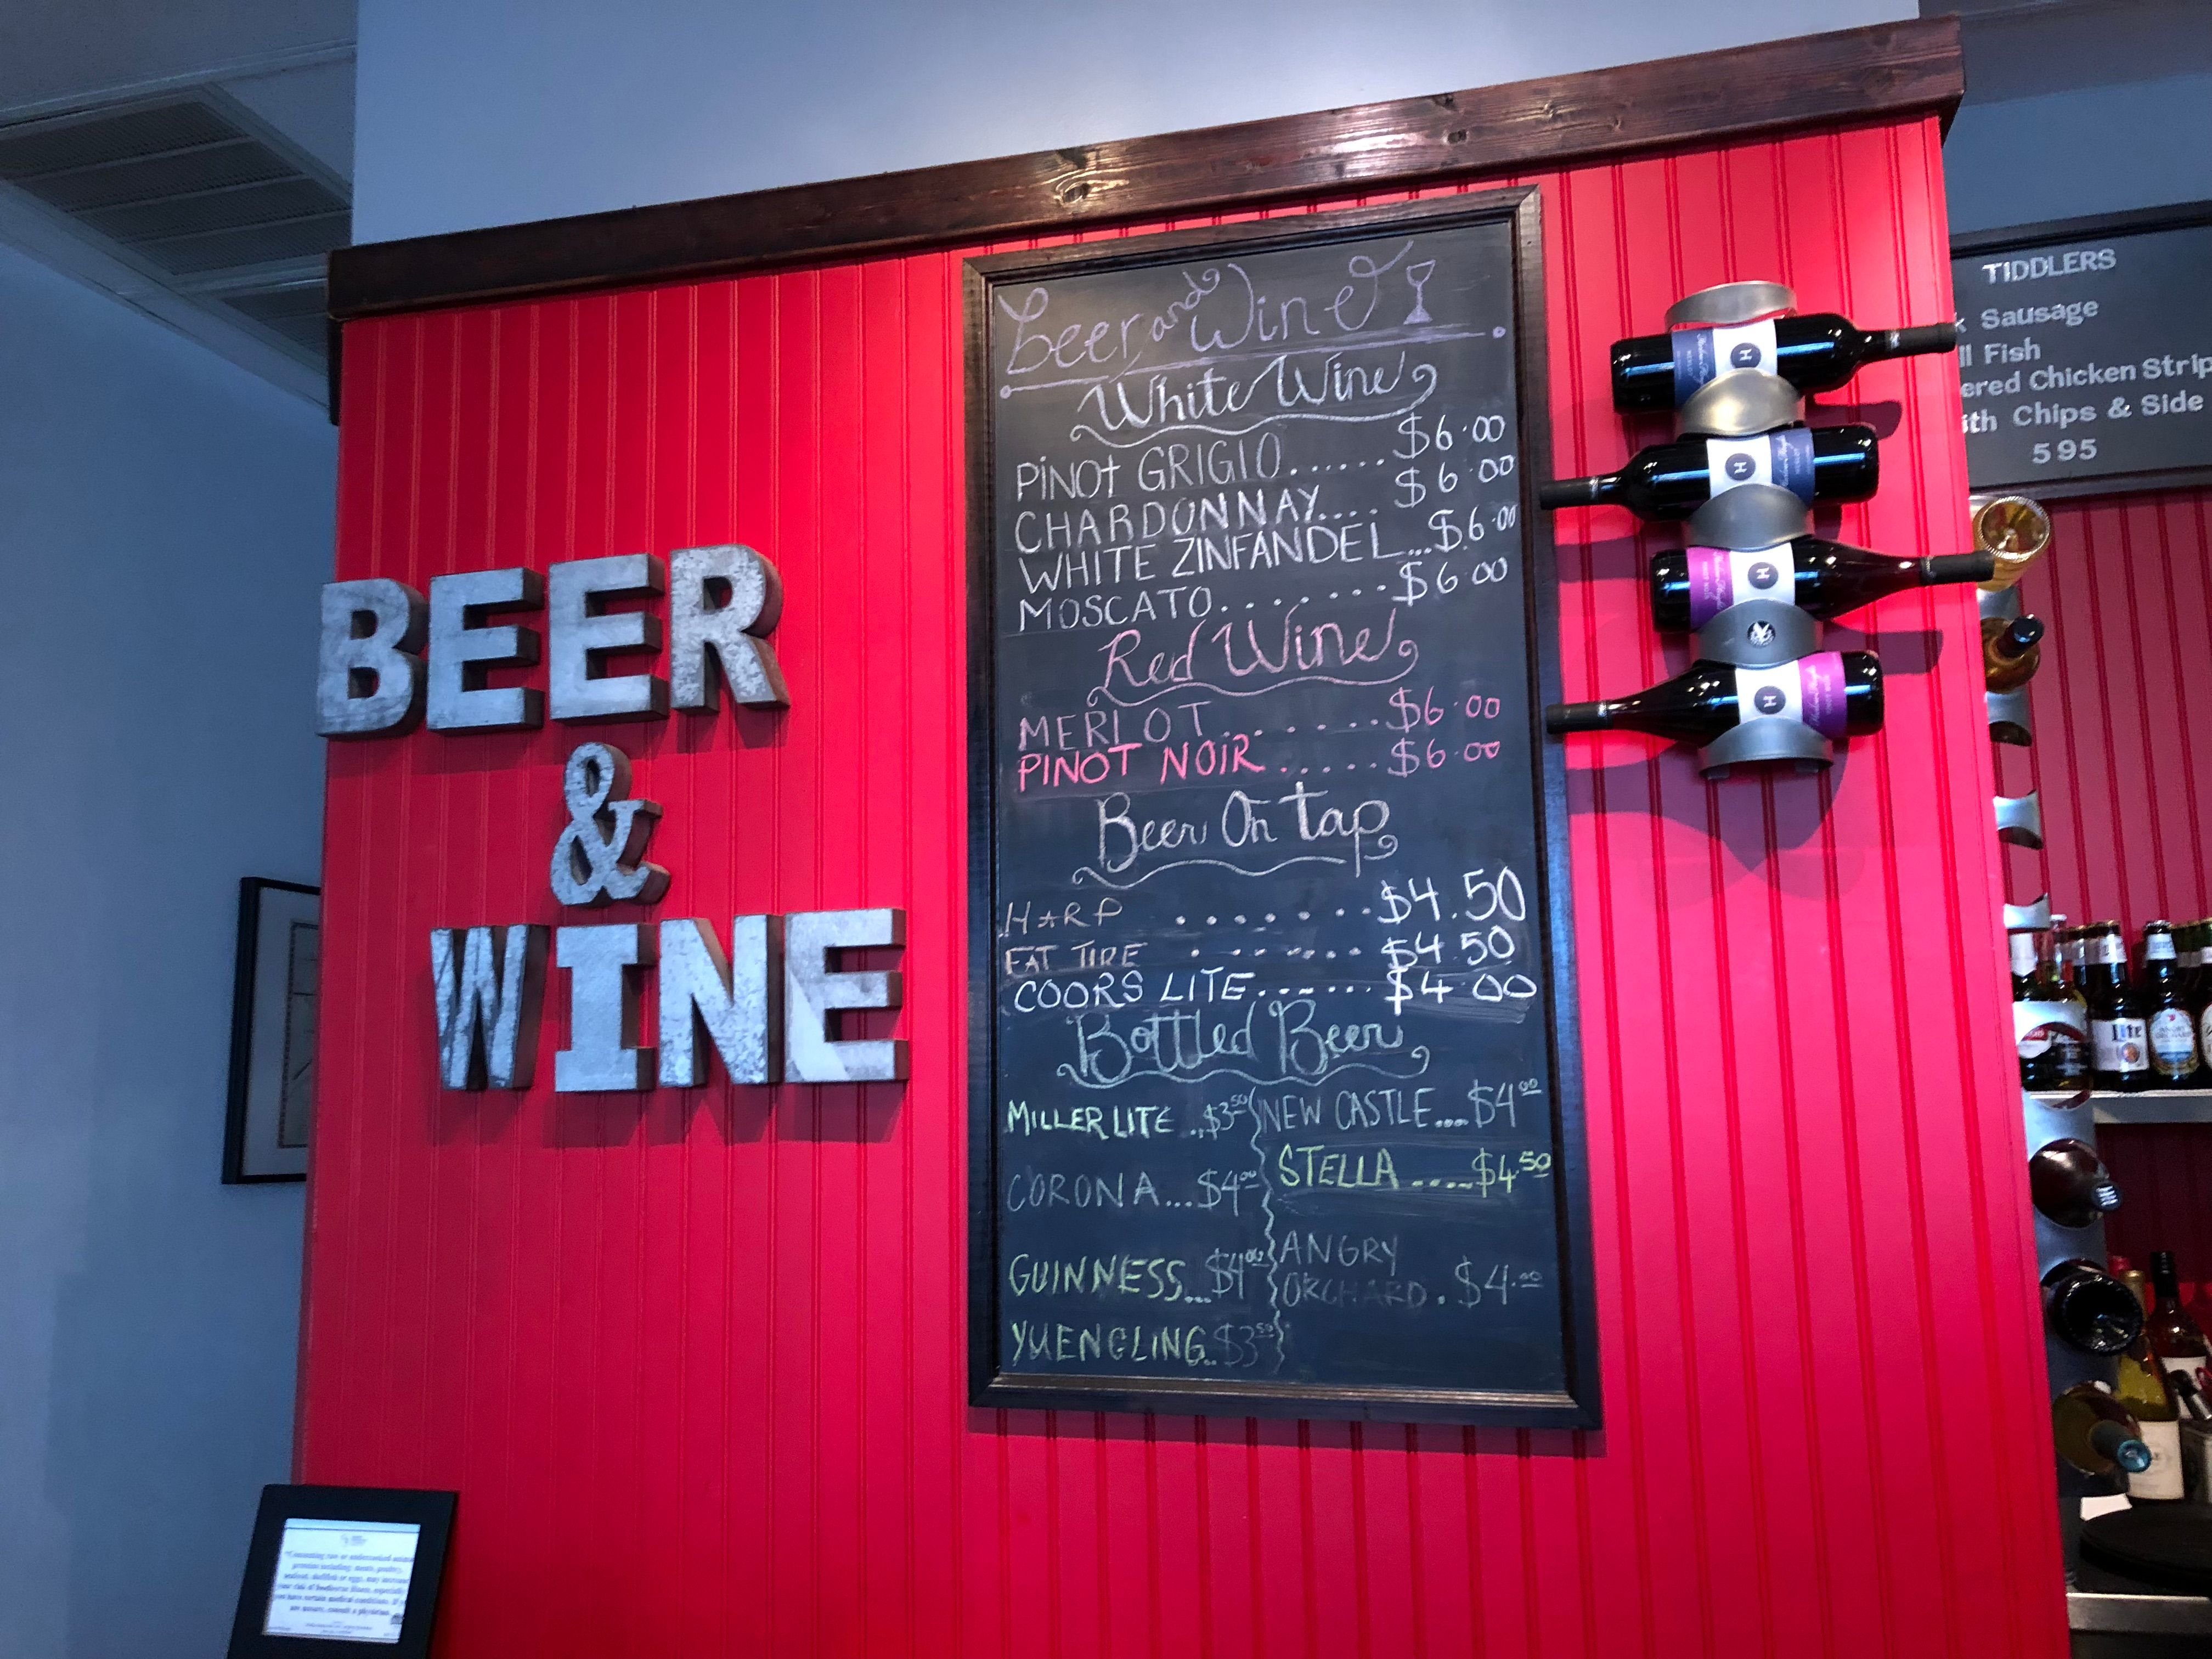 BEER
&
WINE
Beer and Wine
White Wine
PINOT GRIGIO...... $6.00
CHARDONNAY.... $6.00
WHITE ZINFANDEL...$6.00
MOSCATO........$6.00
Red Wine
MERLOT.......$6.00
PINOT NOIR.....$6.00
Beer On Tap
HARP ........$4.50
FAT TIRE .......$4.50
COORS LITE.......$4.00
Bottled Beer
MILLER LITE ..$3.50 NEW CASTLE....$4.00
CORONA...$4.00 STELLA ....$4.50
GUINNESS...$4.00 ANGRY
ORCHARD . $4.00
YUENGLING..$3.50
TIDDLERS
k Sausage
ll Fish
ered Chicken Strip
ith Chips & Side
595
H
H
H
H
Lite